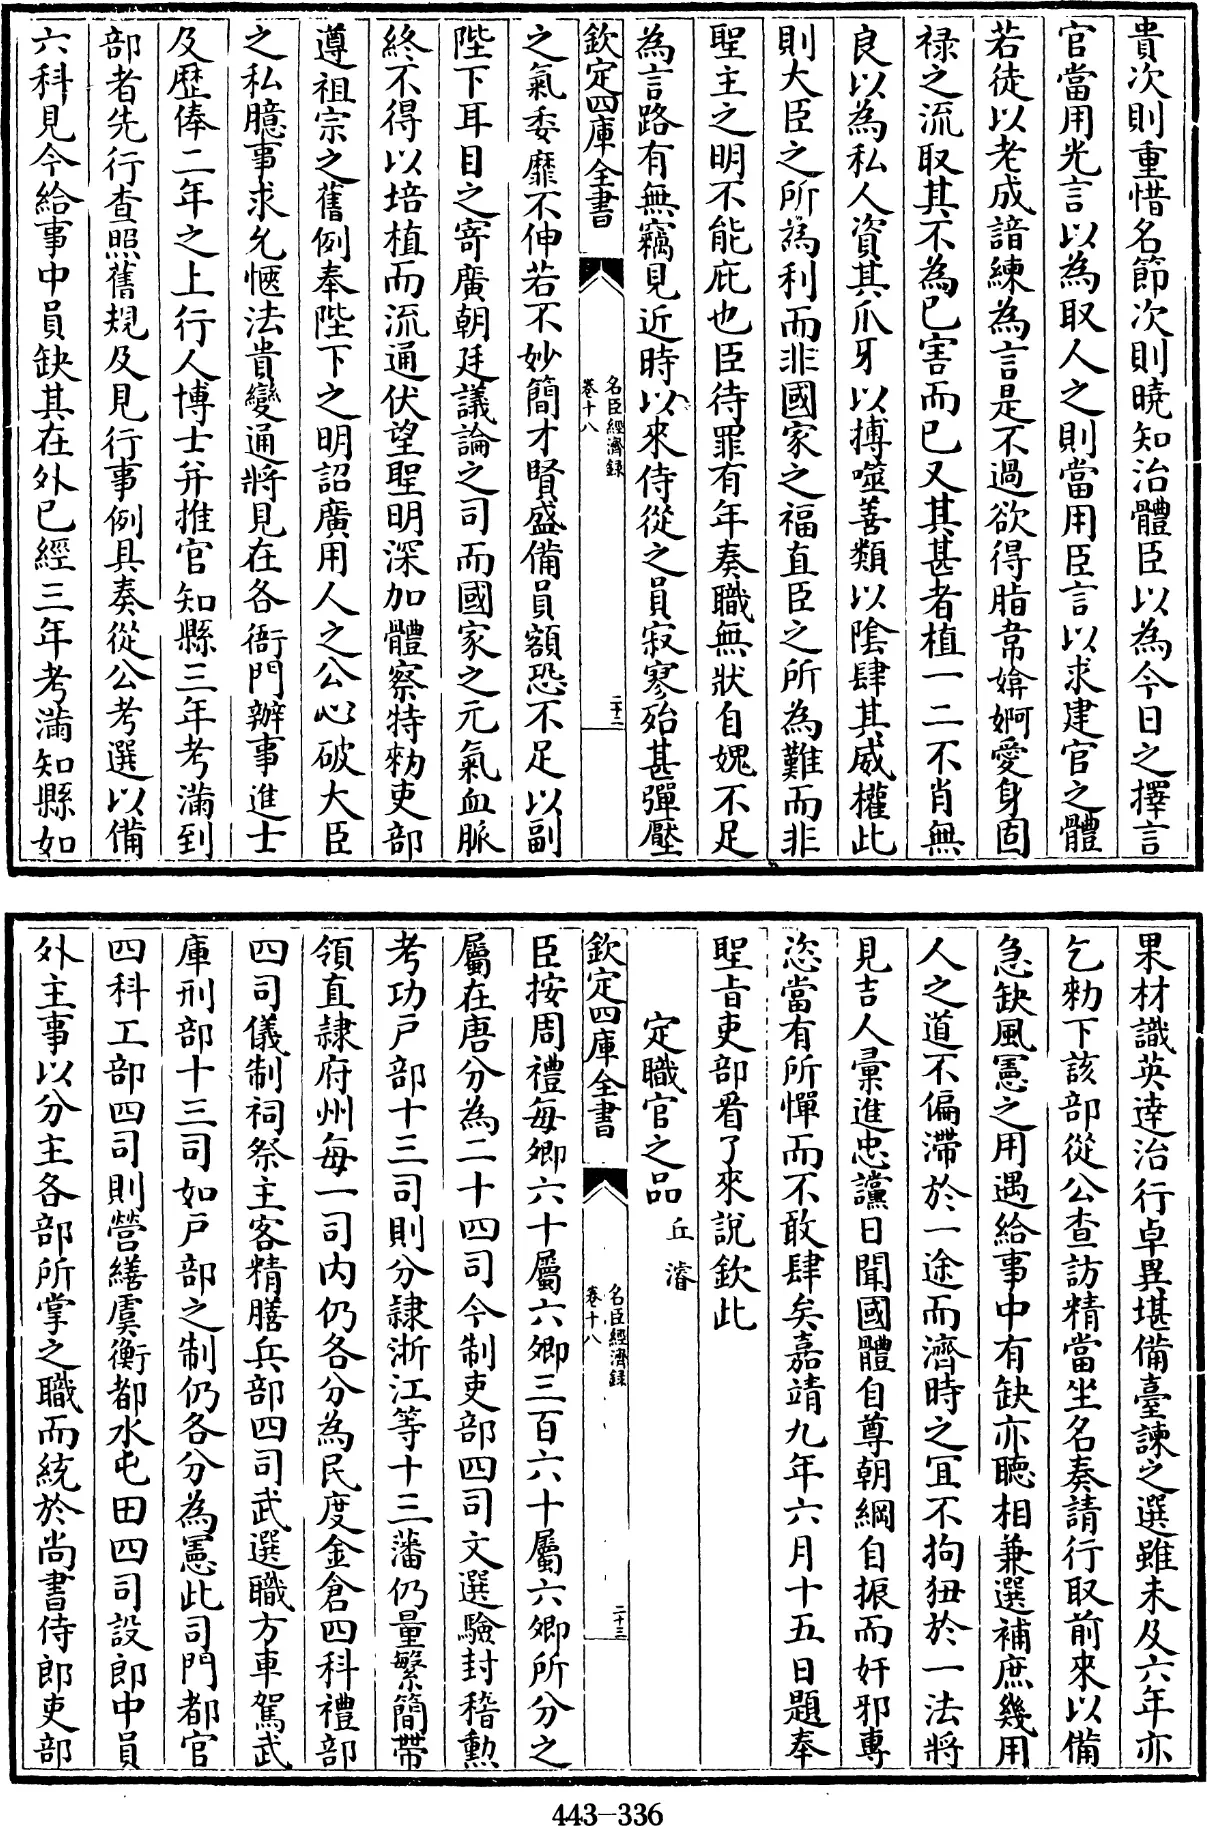 貴次則重惜名節次則曉知治體臣以為今日之擇言
官當用光言以為取人之則當用臣言以求建官之體
若徒以老成諳練為言是不過欲得脂韋媕婀愛身固
祿之流取其不為已害而已又其甚者植一二不肖無
良以為私人資其爪牙以搏噬善類以陰肆其威權此
則大臣之所為利而非國家之福直臣之所為難而非
聖主之明不能庇也臣待罪有年奏職無狀自媿不足
為言路有無竊見近時以來侍從之員寂寥殆甚彈壓
欽定四庫全書
名臣經濟録
卷十八
二十二
之氣委靡不伸若不妙簡才賢盛備員額恐不足以副
陛下耳目之寄廣朝廷議論之司而國家之元氣血脈
終不得以培植而流通伏望聖明深加體察特勑吏部
遵祖宗之舊例奉陛下之明詔廣用人之公心破大臣
之私臆事求允愜法貴變通將見在各衙門辦事進士
及歷俸二年之上行人博士并推官知縣三年考滿到
部者先行查照舊規及見行事例具奏從公考選以備
六科見今給事中員缺其在外已經三年考滿知縣如
果材識英達治行卓異堪備臺諫之選雖未及六年亦
乞勑下該部從公查訪精當坐名奏請行取前來以備
急缺風憲之用遇給事中有缺亦聽相兼選補庶幾用
人之道不偏滯於一途而濟時之宜不拘狃於一法將
見吉人彙進忠讜日聞國體自尊朝綱自振而奸邪專
恣當有所憚而不敢肆矣嘉靖九年六月十五日題奉
聖旨吏部看了來說欽此
定職官之品 丘濬
欽定四庫全書
名臣經濟録
卷十八
二十三
臣按周禮每卿六十屬六卿三百六十屬六卿所分之
屬在唐分為二十四司今制吏部四司文選驗封稽勲
考功戸部十三司則分隷浙江等十三藩仍量繁簡帶
領直隷府州每一司内仍各分為民度金倉四科禮部
四司儀制祠祭主客精膳兵部四司武選職方車駕武
庫刑部十三司如戸部之制仍各分為憲比司門都官
四科工部四司則營繕虞衡都水屯田四司設郎中員
外主事以分主各部所掌之職而統於尚書侍郎吏部
443-336